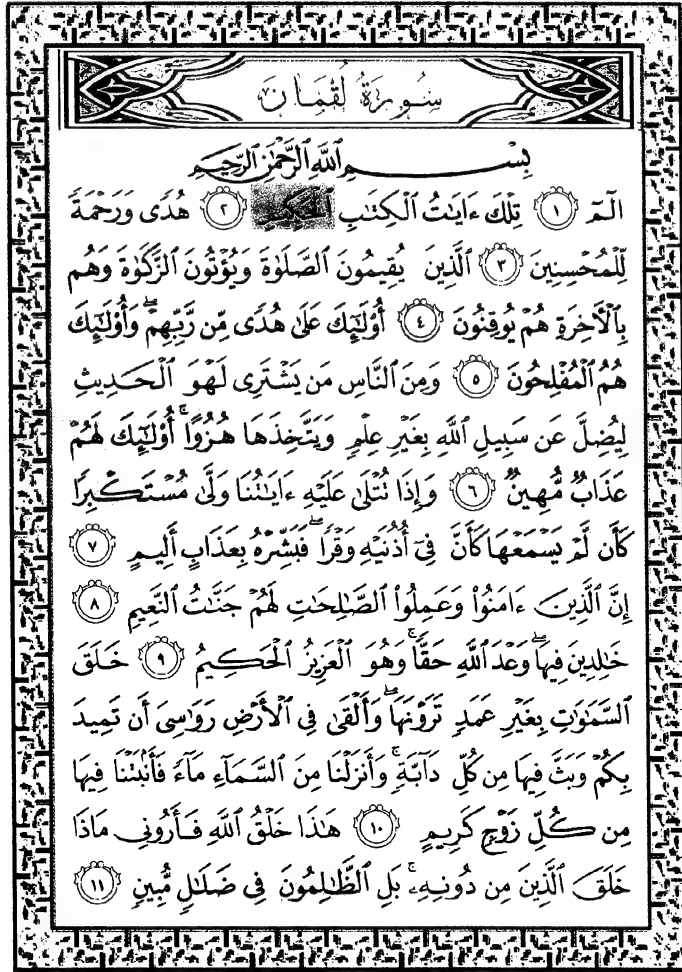 سُورَةُ لُقْمَان
بِسْمِ ٱللَّهِ ٱلرَّحْمَٰنِ ٱلرَّحِيمِ
الٓمٓ ١ تِلْكَ ءَايَٰتُ ٱلْكِتَٰبِ ٱلْحَكِيمِ ٢ هُدًى وَرَحْمَةً
لِّلْمُحْسِنِينَ ٣ ٱلَّذِينَ يُقِيمُونَ ٱلصَّلَوٰةَ وَيُؤْتُونَ ٱلزَّكَوٰةَ وَهُم
بِٱلْءَاخِرَةِ هُمْ يُوقِنُونَ ٤ أُوْلَٰٓئِكَ عَلَىٰ هُدًى مِّن رَّبِّهِمْ ۖ وَأُوْلَٰٓئِكَ
هُمُ ٱلْمُفْلِحُونَ ٥ وَمِنَ ٱلنَّاسِ مَن يَشْتَرِى لَهْوَ ٱلْحَدِيثِ
لِيُضِلَّ عَن سَبِيلِ ٱللَّهِ بِغَيْرِ عِلْمٍ وَيَتَّخِذَهَا هُزُوًا ۚ أُوْلَٰٓئِكَ لَهُمْ
عَذَابٌ مُّهِينٌ ٦ وَإِذَا تُتْلَىٰ عَلَيْهِ ءَايَٰتُنَا وَلَّىٰ مُسْتَكْبِرًا
كَأَن لَّمْ يَسْمَعْهَا كَأَنَّ فِىٓ أُذُنَيْهِ وَقْرًا ۖ فَبَشِّرْهُ بِعَذَابٍ أَلِيمٍ ٧
إِنَّ ٱلَّذِينَ ءَامَنُوا۟ وَعَمِلُوا۟ ٱلصَّٰلِحَٰتِ لَهُمْ جَنَّٰتُ ٱلنَّعِيمِ ٨
خَٰلِدِينَ فِيهَا ۖ وَعْدَ ٱللَّهِ حَقًّا ۚ وَهُوَ ٱلْعَزِيزُ ٱلْحَكِيمُ ٩ خَلَقَ
ٱلسَّمَٰوَٰتِ بِغَيْرِ عَمَدٍ تَرَوْنَهَا ۖ وَأَلْقَىٰ فِى ٱلْأَرْضِ رَوَٰسِىَ أَن تَمِيدَ
بِكُمْ وَبَثَّ فِيهَا مِن كُلِّ دَآبَّةٍ ۚ وَأَنزَلْنَا مِنَ ٱلسَّمَآءِ مَآءً فَأَنۢبَتْنَا فِيهَا
مِن كُلِّ زَوْجٍ كَرِيمٍ ١٠ هَٰذَا خَلْقُ ٱللَّهِ فَأَرُونِى مَاذَا
خَلَقَ ٱلَّذِينَ مِن دُونِهِۦ ۚ بَلِ ٱلظَّٰلِمُونَ فِى ضَلَٰلٍ مُّبِينٍ ١١